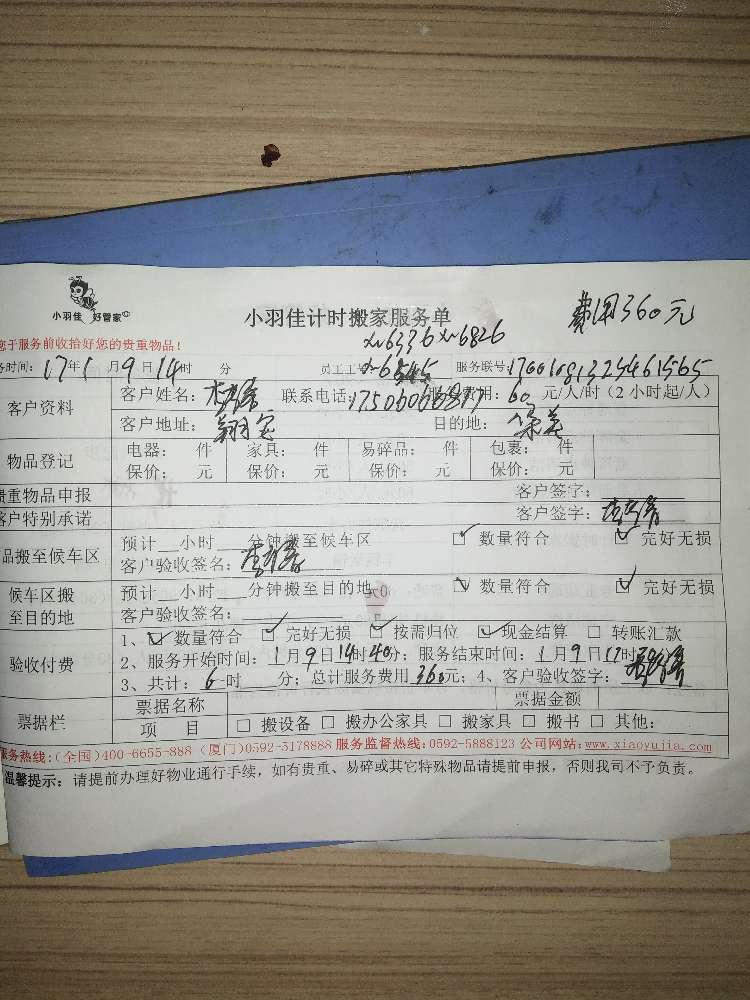 小羽佳 好管家
小羽佳计时搬家服务单
费用360元
您于服务前收拾好您的贵重物品!
xn6336 xn6826
务时间: 17年1月9日14时 分 员工工号: 服务联号:
客户资料 客户姓名: 联系电话: 费用: 60 元/人/时(2小时起/人)
客户地址: 目的地:
物品登记 电器: 件 家具: 件 易碎品: 件 包裹: 件
保价: 元 保价: 元 保价: 元 保价: 元
贵重物品申报 客户签字:
客户特别承诺 客户签字:
品搬至候车区 预计__小时__分钟搬至候车区 ☑ 数量符合 ☑ 完好无损
客户验收签名:
候车区搬至目的地 预计__小时__分钟搬至目的地 ☑ 数量符合 ☑ 完好无损
客户验收签名:
验收付费 1、☑ 数量符合 ☑ 完好无损 ☑ 按需归位 ☑ 现金结算 □ 转账汇款
2、服务开始时间: 1月9日14时40分; 服务结束时间: 1月9日17时
3、共计: 6时 分; 总计服务费用360元; 4、客户验收签字:
票据栏 票据名称 票据金额
项 目 □ 搬设备 □ 搬办公家具 □ 搬家具 □ 搬书 □ 其他:
服务热线:(全国)400-6655-888 (厦门)0592-3178888 服务监督热线:0592-5888123 公司网站:www.xiaoyujia.com
温馨提示: 请提前办理好物业通行手续, 如有贵重、易碎或其它特殊物品请提前申报, 否则我司不予负责。